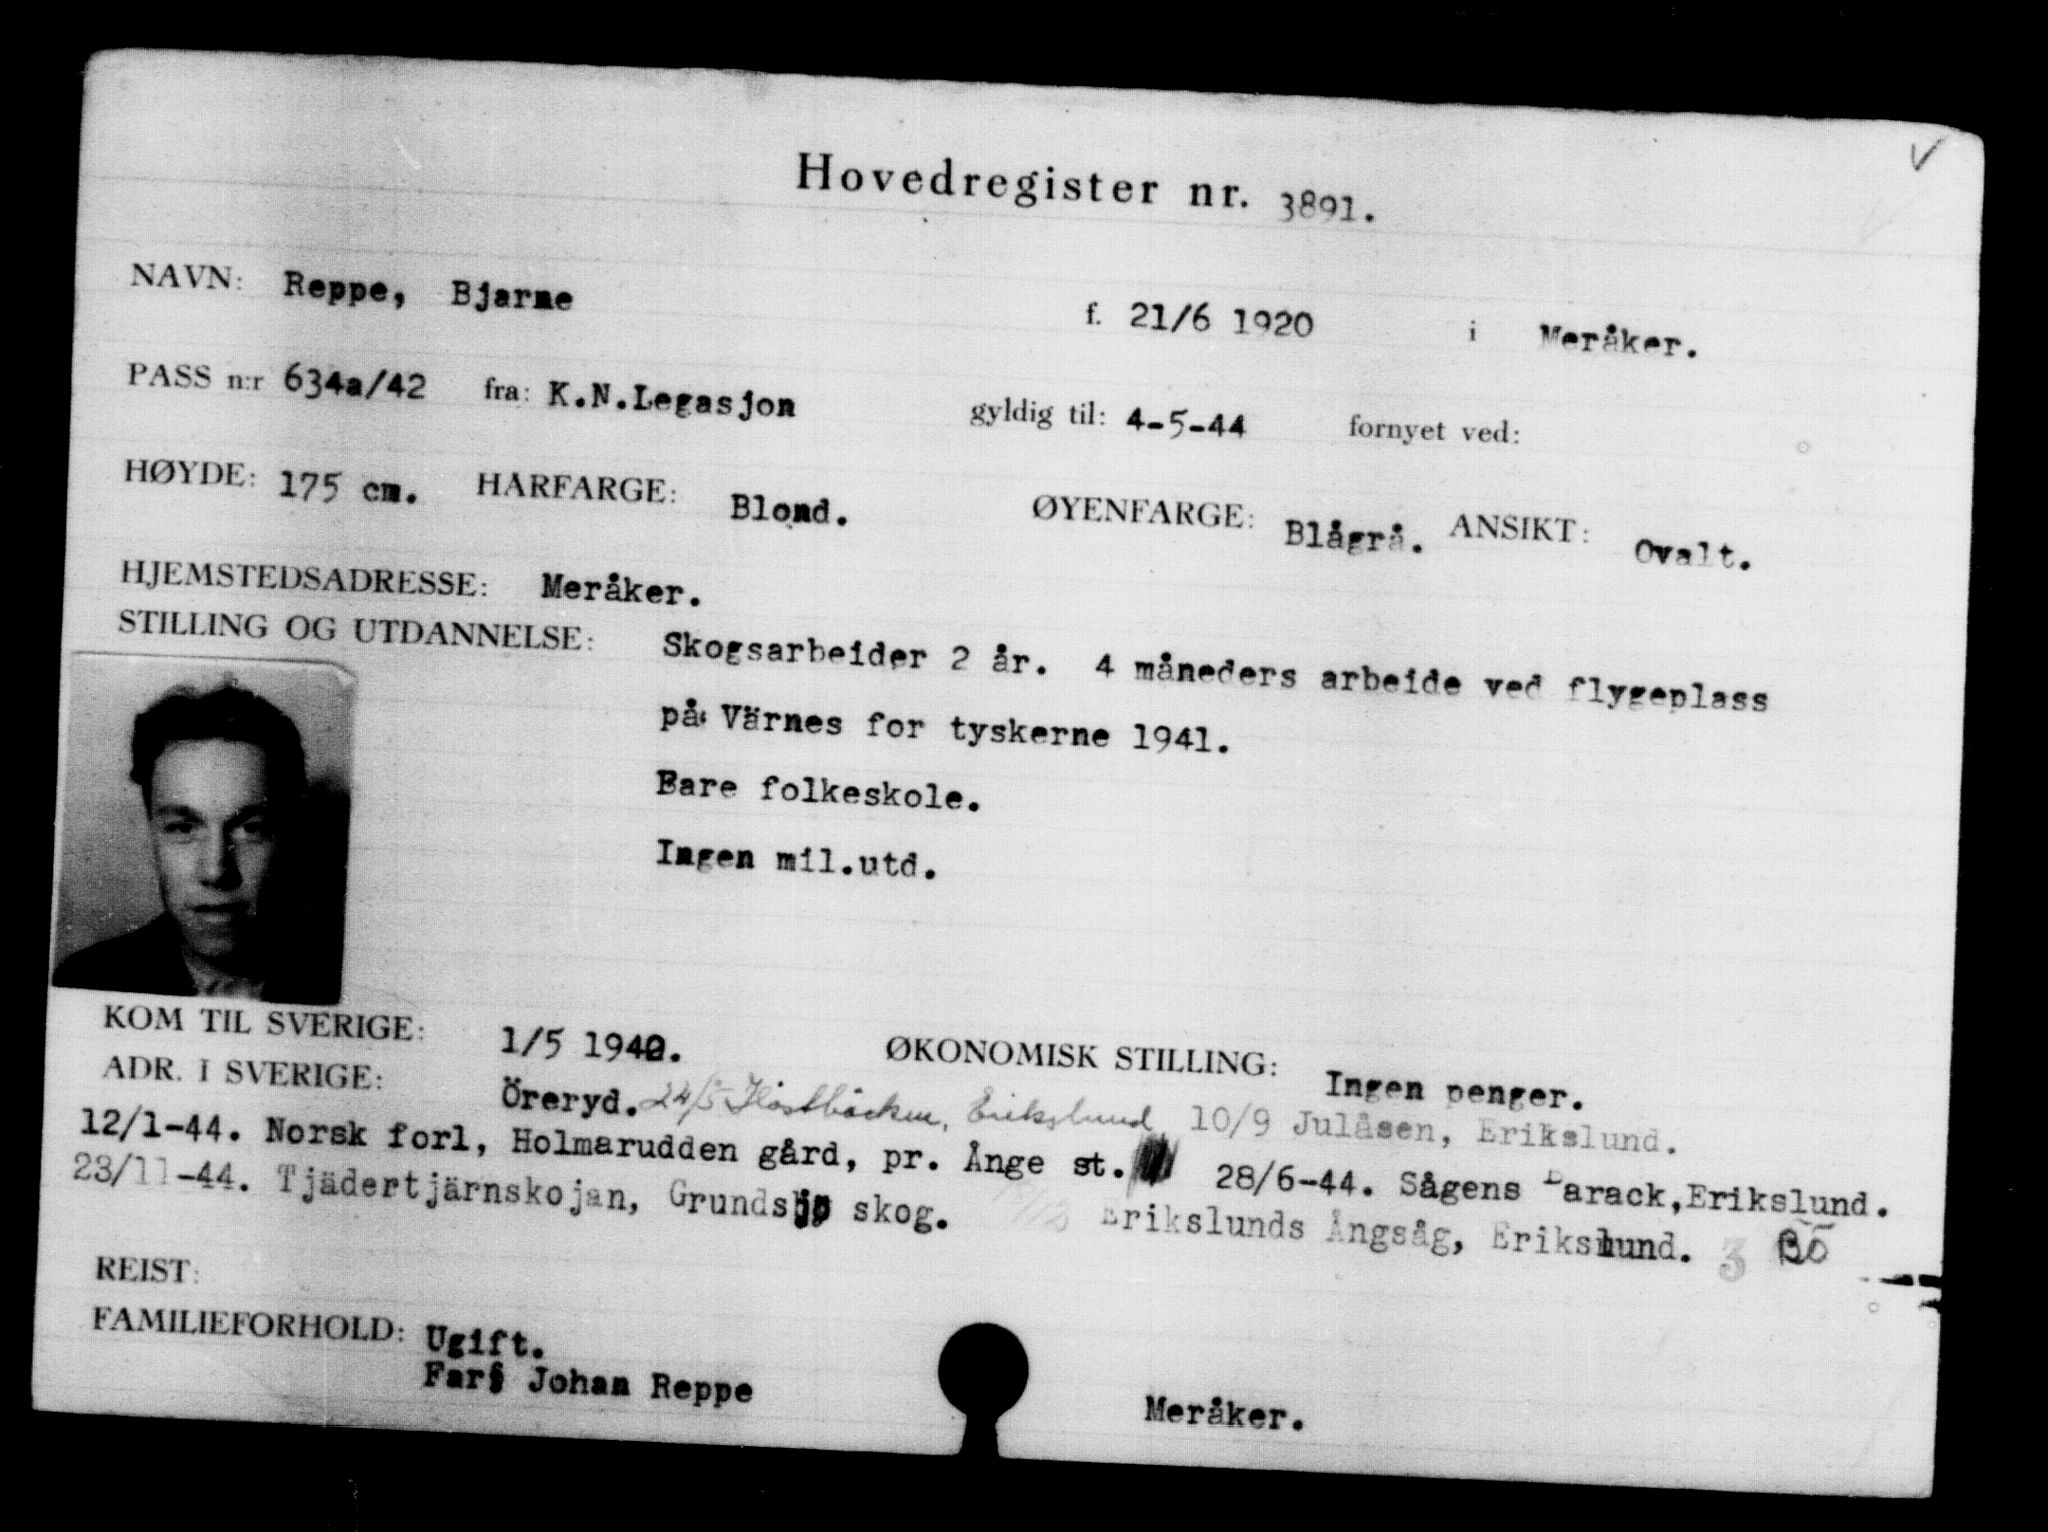 Hovedregister nr. 3891.
NAVN: Reppe, Bjarne f. 21/6 1920 i Meråker.
PASS n:r 634a/42 fra: K.N.Legasjon gyldig til: 4-5-44 fornyet ved:
HØYDE: 175 cm. HARFARGE: Blond. ØYENFARGE: Blågrå. ANSIKT: Ovalt.
HJEMSTEDSADRESSE: Meråker.
STILLING OG UTDANNELSE: Skogsarbeider 2 år. 4 måneders arbeide ved flygeplass
på Värnes for tyskerne 1941.
Bare folkeskole.
Ingen mil.utd.
KOM TIL SVERIGE: 1/5 1942. ØKONOMISK STILLING: Ingen penger.
ADR. I SVERIGE: Öreryd. 24/5 Erikslund, 10/9 Julåsen, Erikslund.
12/1-44. Norsk forl, Holmarudden gård, pr. Ånge st. 28/6-44. Sågens Barack,Erikslund.
23/11-44. Tjädertjärnskojan, Grundsjö skog. Erikslunds Ångsåg, Erikslund. 3
REIST:
FAMILIEFORHOLD: Ugift.
Far: Johan Reppe Meråker.